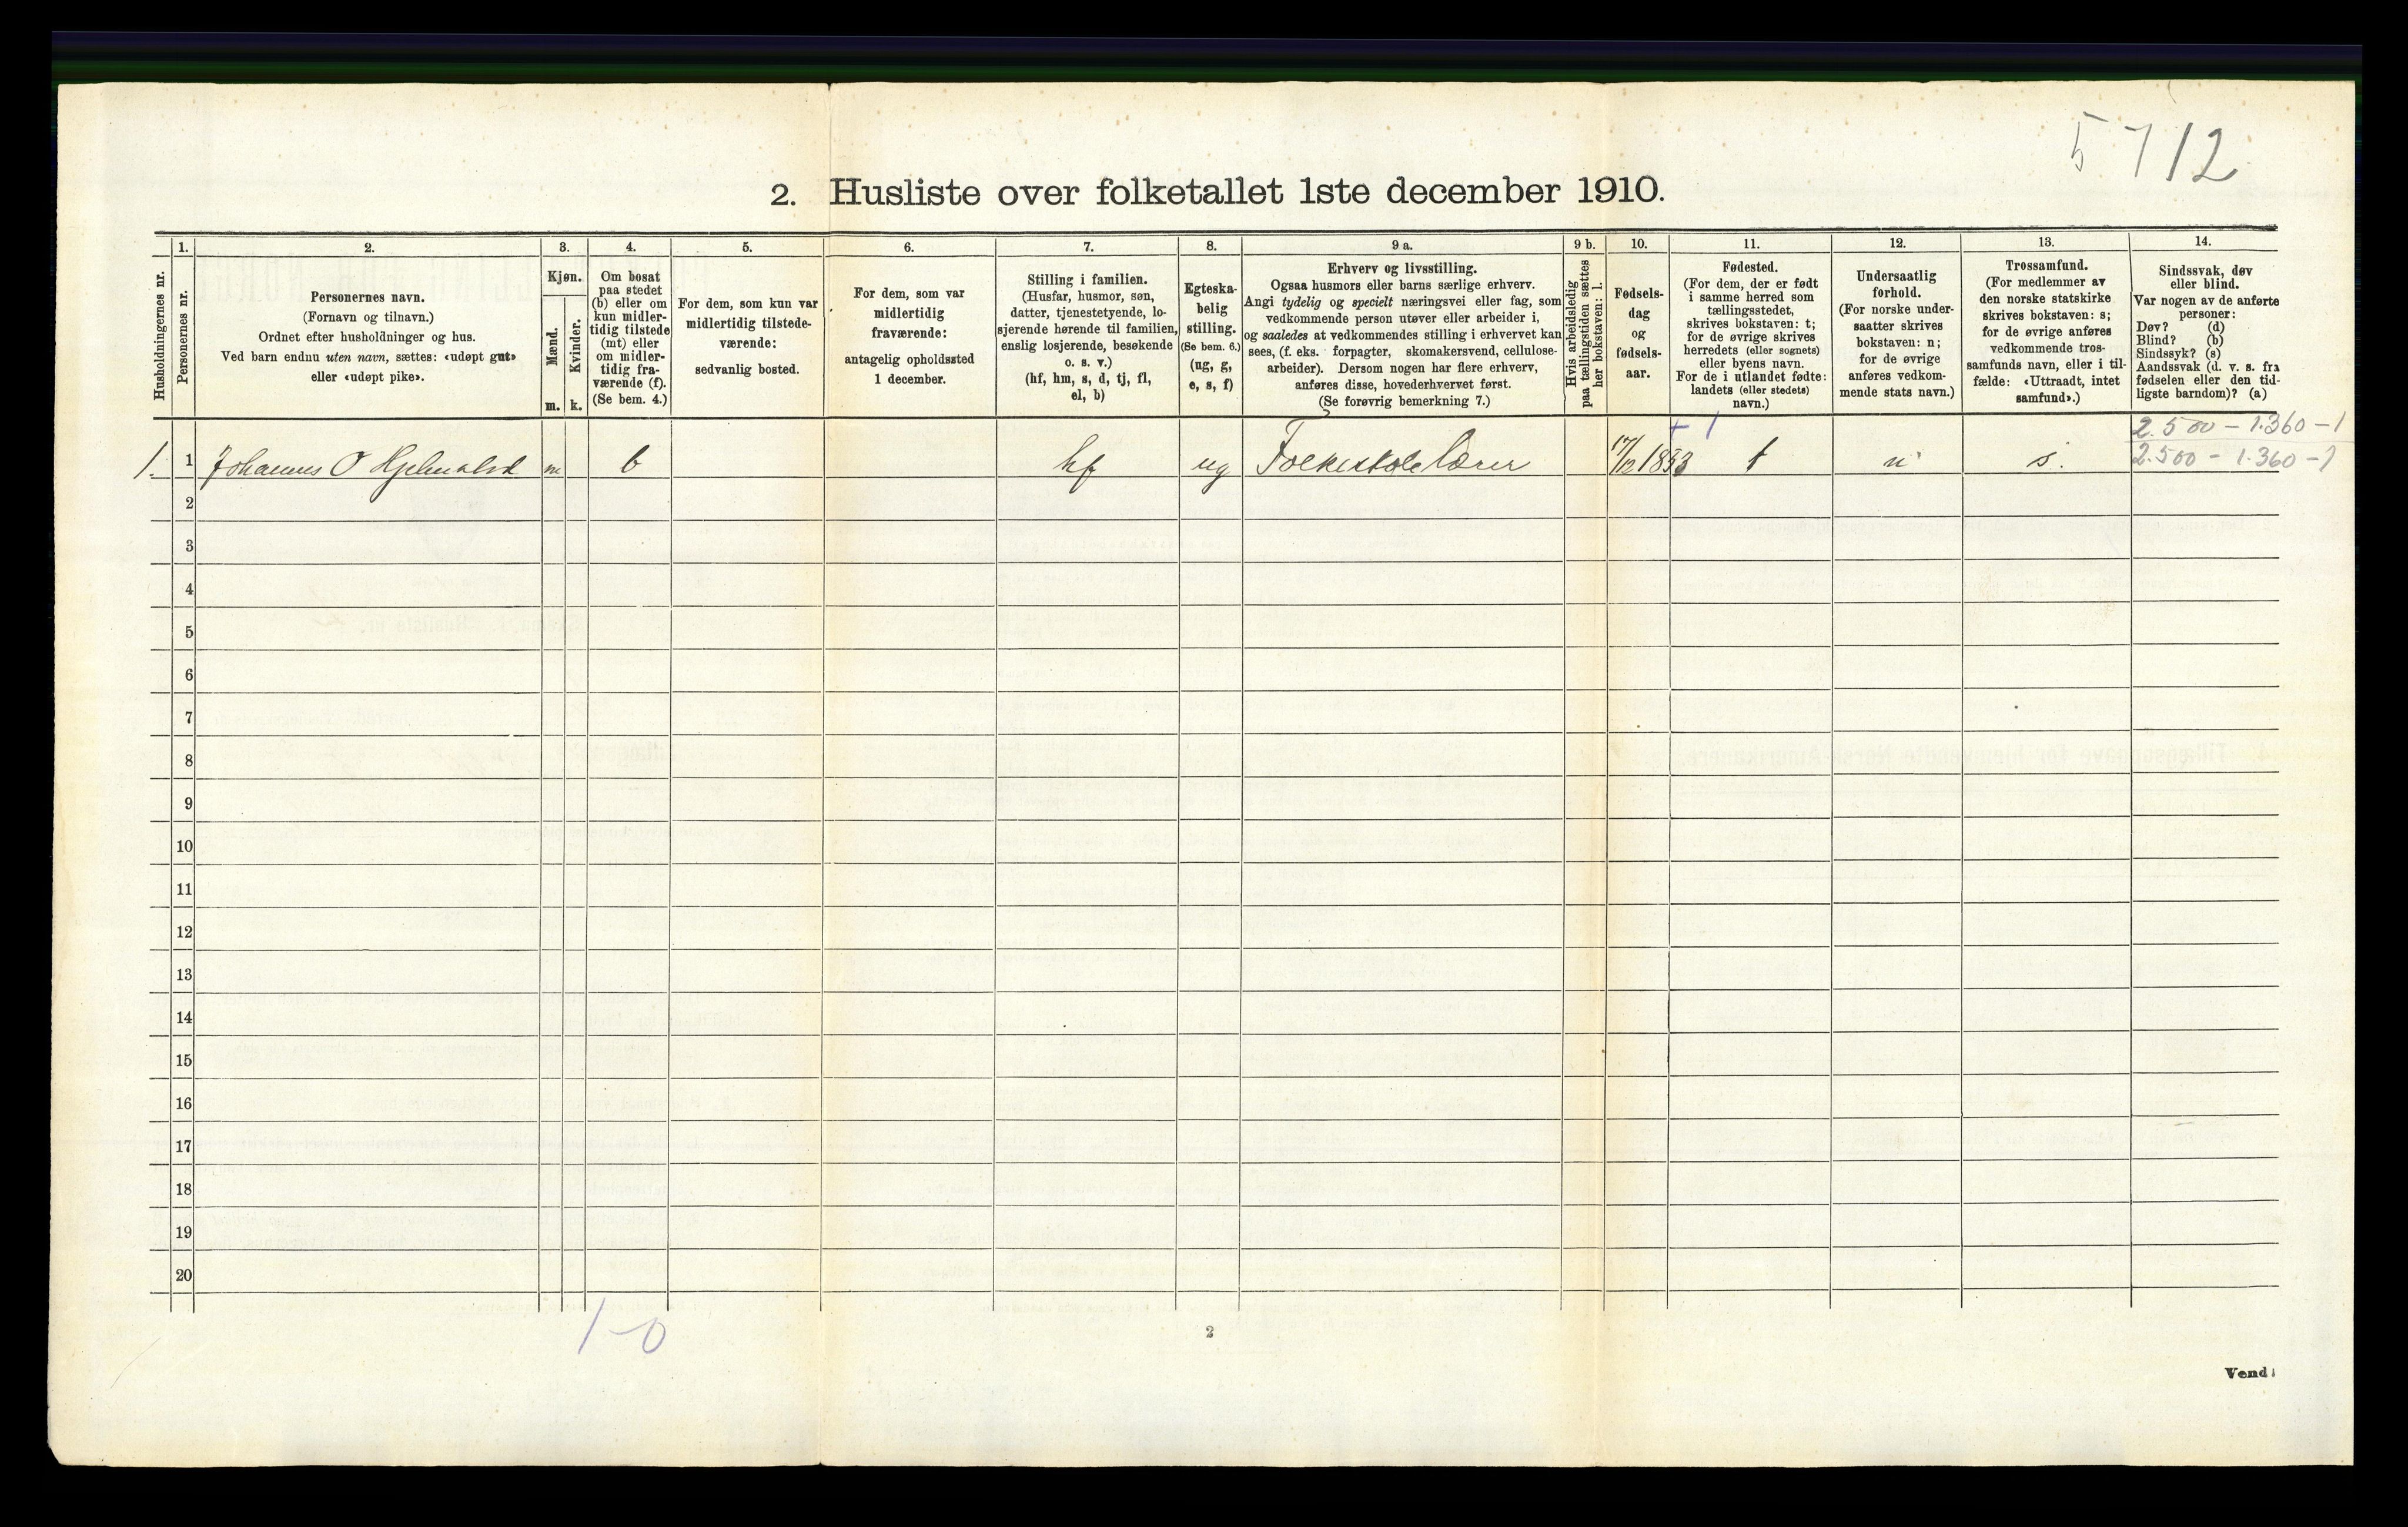 5712
2. Husliste over folketallet 1ste december 1910.
Husholdningernes nr.
1.
Personernes nr.
2.
Personernes navn.
(Fornavn og tilnavn.)
Ordnet efter husholdninger og hus.
Ved barn endnu uten navn, sættes: «udøpt gut»
eller «udøpt pike».
3.
Kjøn.
Mænd.
Kvinder.
m. k.
4.
Om bosat
paa stedet
(b) eller om
kun midler-
tidig tilstede
(mt) eller
om midler-
tidig fra-
værende (f).
(Se bem. 4.)
5.
For dem, som kun var
midlertidig tilstede-
værende:
sedvanlig bosted.
6.
For dem, som var
midlertidig
fraværende:
antagelig opholdssted
1 december.
7.
Stilling i familien.
(Husfar, husmor, søn,
datter, tjenestetyende, lo-
sjerende hørende til familien,
enslig losjerende, besøkende
o. s. v.)
(hf, hm, s, d, tj, fl,
el, b)
8.
Egteska-
belig
stilling.
(Se bem. 6.)
(ug, g,
e, s, f)
9 a.
Erhverv og livsstilling.
Ogsaa husmors eller barns særlige erhverv.
Angi tydelig og specielt næringsvei eller fag, som
vedkommende person utøver eller arbeider i,
og saaledes at vedkommendes stilling i erhvervet kan
sees, (f. eks. forpagter, skomakersvend, cellulose-
arbeider). Dersom nogen har flere erhverv,
anføres disse, hovederhvervet først.
(Se forøvrig bemerkning 7.)
9 b.
Hvis arbeidsledig
paa tællingstiden sættes
her bokstaven: l.
10.
Fødsels-
dag
og
fødsels-
aar.
11.
Fødested.
(For dem, der er født
i samme herred som
tællingsstedet,
skrives bokstaven: t;
for de øvrige skrives
herredets (eller sognets)
eller byens navn.
For de i utlandet fødte:
landets (eller stedets)
navn.)
12.
Undersaatlig
forhold.
(For norske under-
saatter skrives
bokstaven: n;
for de øvrige
anføres vedkom-
mende stats navn.)
13.
Trossamfund.
(For medlemmer av
den norske statskirke
skrives bokstaven: s;
for de øvrige anføres
vedkommende tros-
samfunds navn, eller i til-
fælde: «Uttraadt, intet
samfund».)
14.
Sindssvak, døv
eller blind.
Var nogen av de anførte
personer:
Døv? (d)
Blind? (b)
Sindssyk? (s)
Aandssvak (d. v. s. fra
fødselen eller den tid-
ligste barndom)? (a)
+ 1 2.500 - 1.360 - 1
1. 1 Johannes O m b hf ug Folkeskolelærer 17/12 1853 t n s. 2.500 - 1.360 - 1
2
3
4
5
6
7
8
9
10
11
12
13
14
15
16
17
18
19
20
1-0
2
Vend!